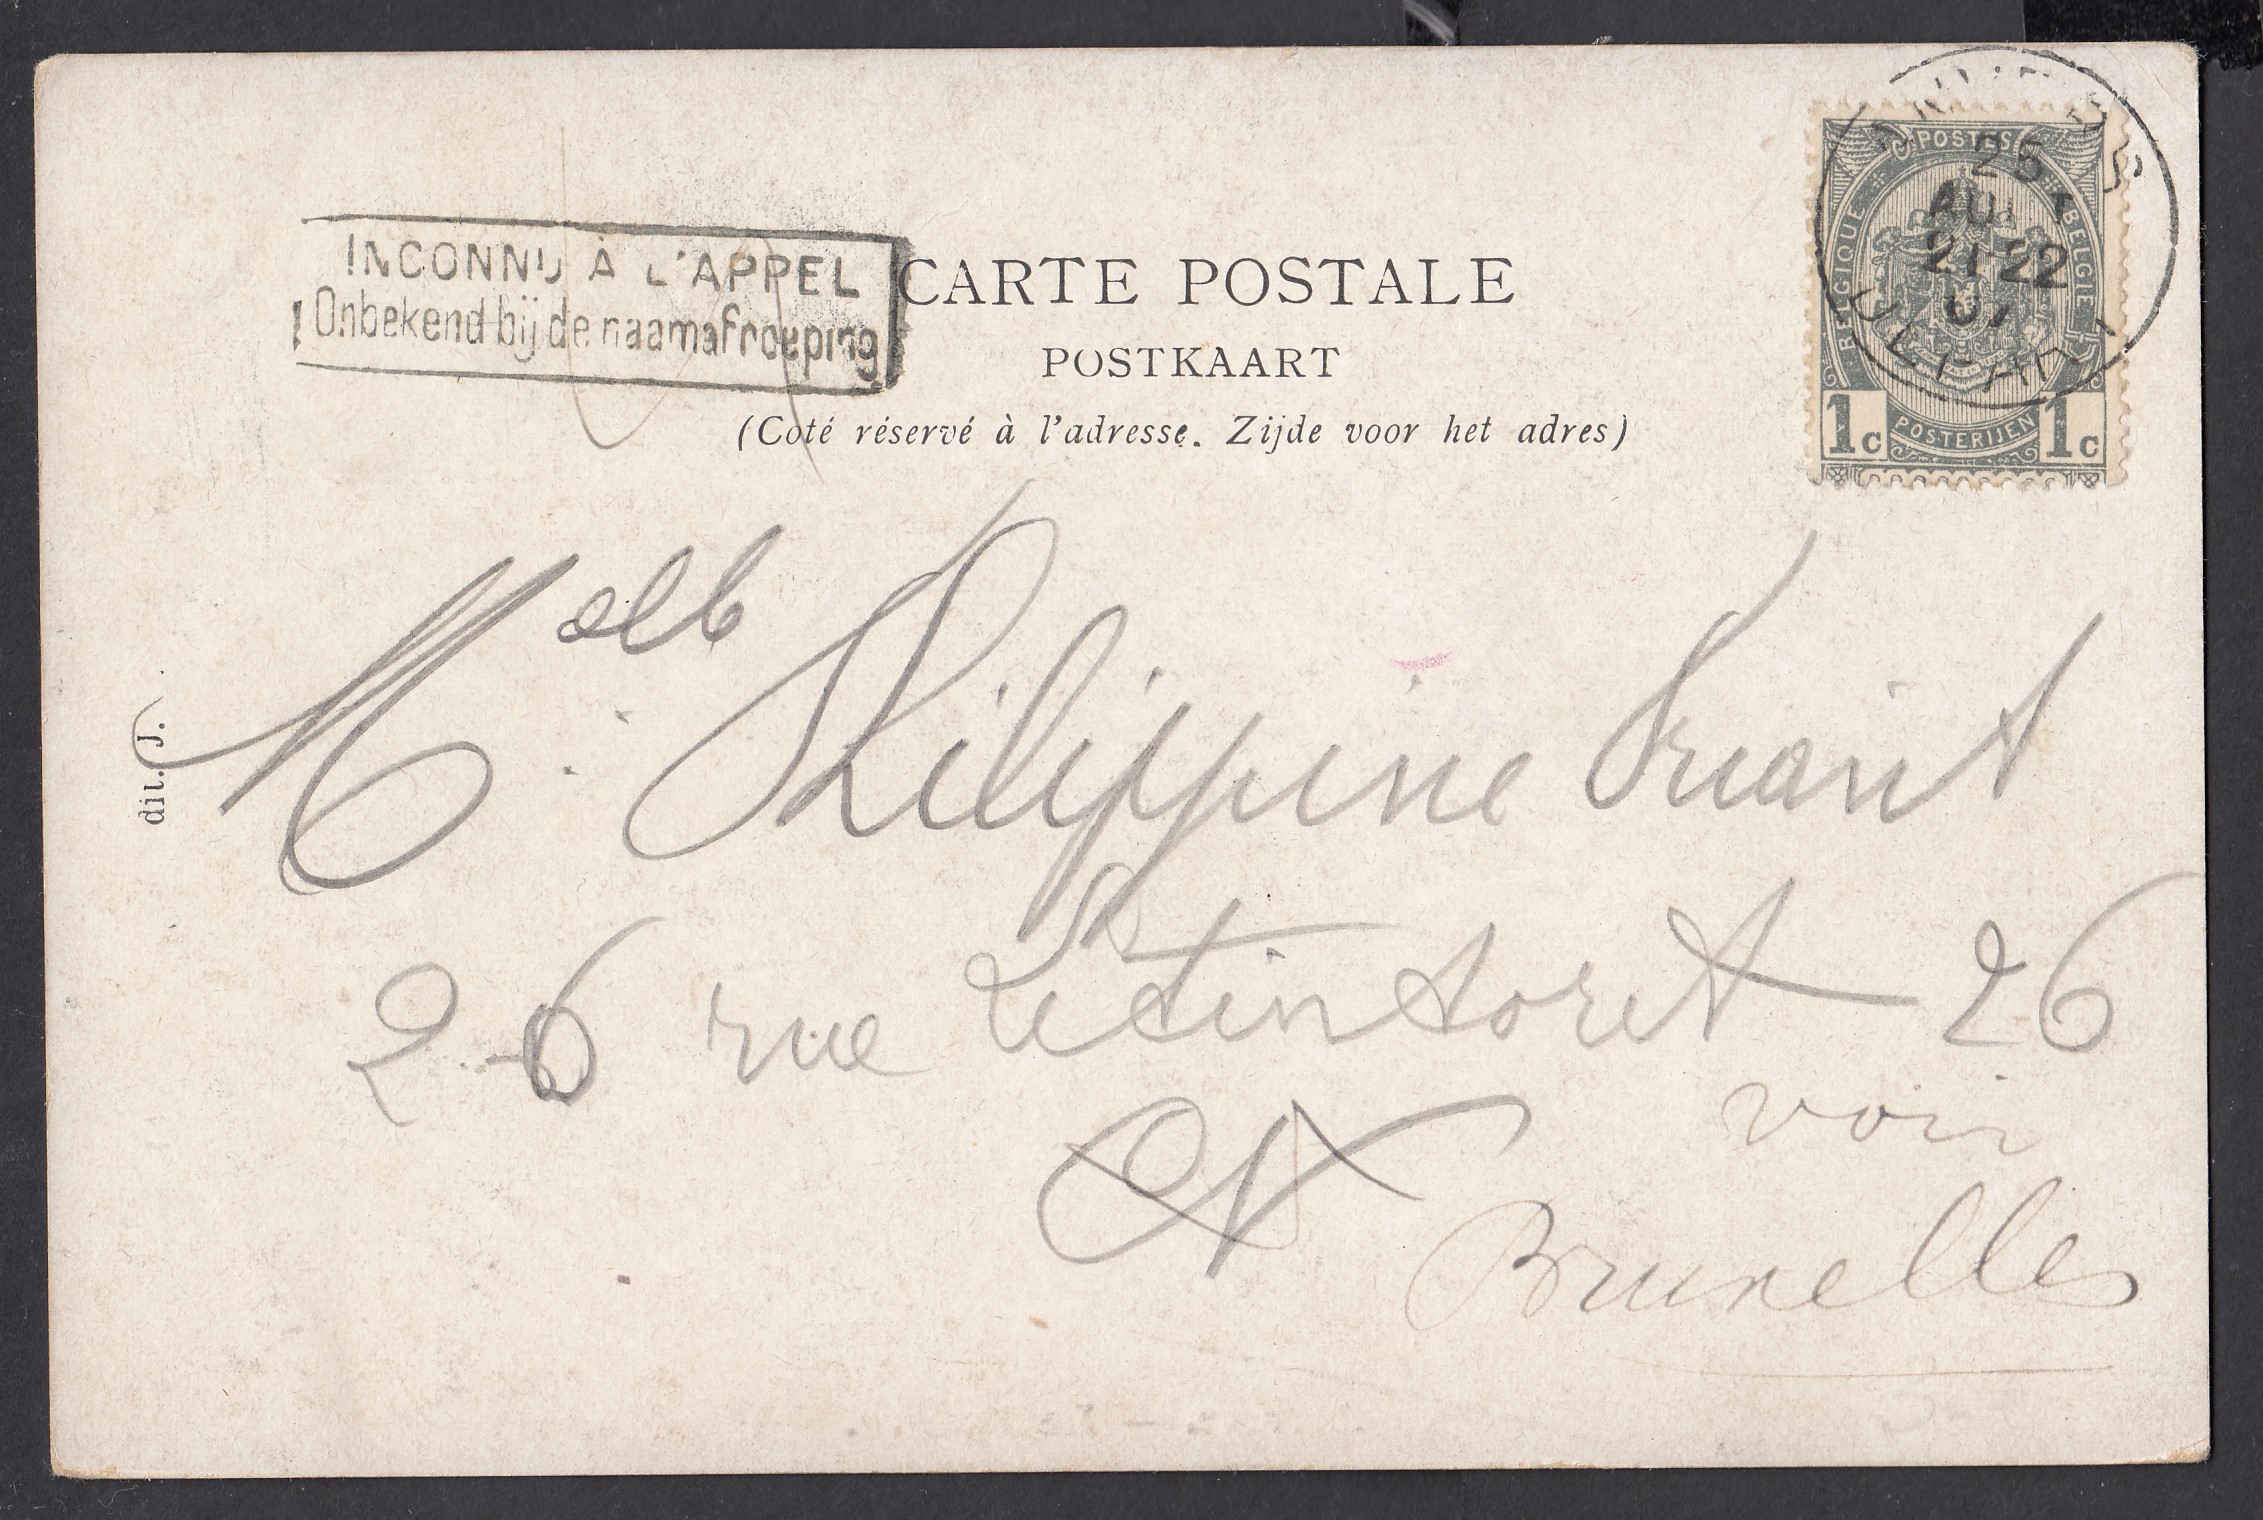 INCONNU À L'APPEL
Onbekend bij de naamafroeping
CARTE POSTALE
POSTKAART
(Coté réservé à l'adresse. Zijde voor het adres)
POSTES
BELGIQUE BELGIE
1c POSTERIJEN 1c
25
AOUT
21-22
07
DEPART
dit. J.
Melle Philippine Friant
26 rue Le Tintoret 26
voir
Bruxelles